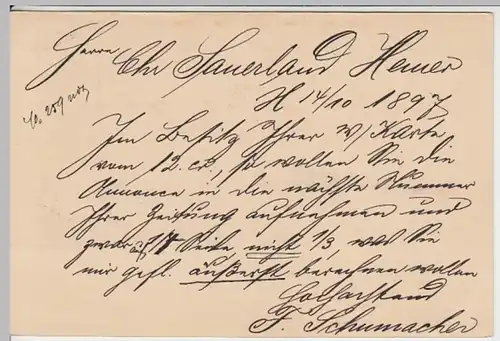 Herrn Chr Sauerland Hemer
H 14/10 1897
Im Besitz Ihrer W/ Karte
vom 12. cr, so wollen Sie die
Annonce in die nächste Nummer
Ihrer Zeitung aufnehmen und
zwar auf 1/4 Seite nicht 1/3, was Sie
mir gefl. äußerst berechnen wollen
Hochachtend
F. Schumacher